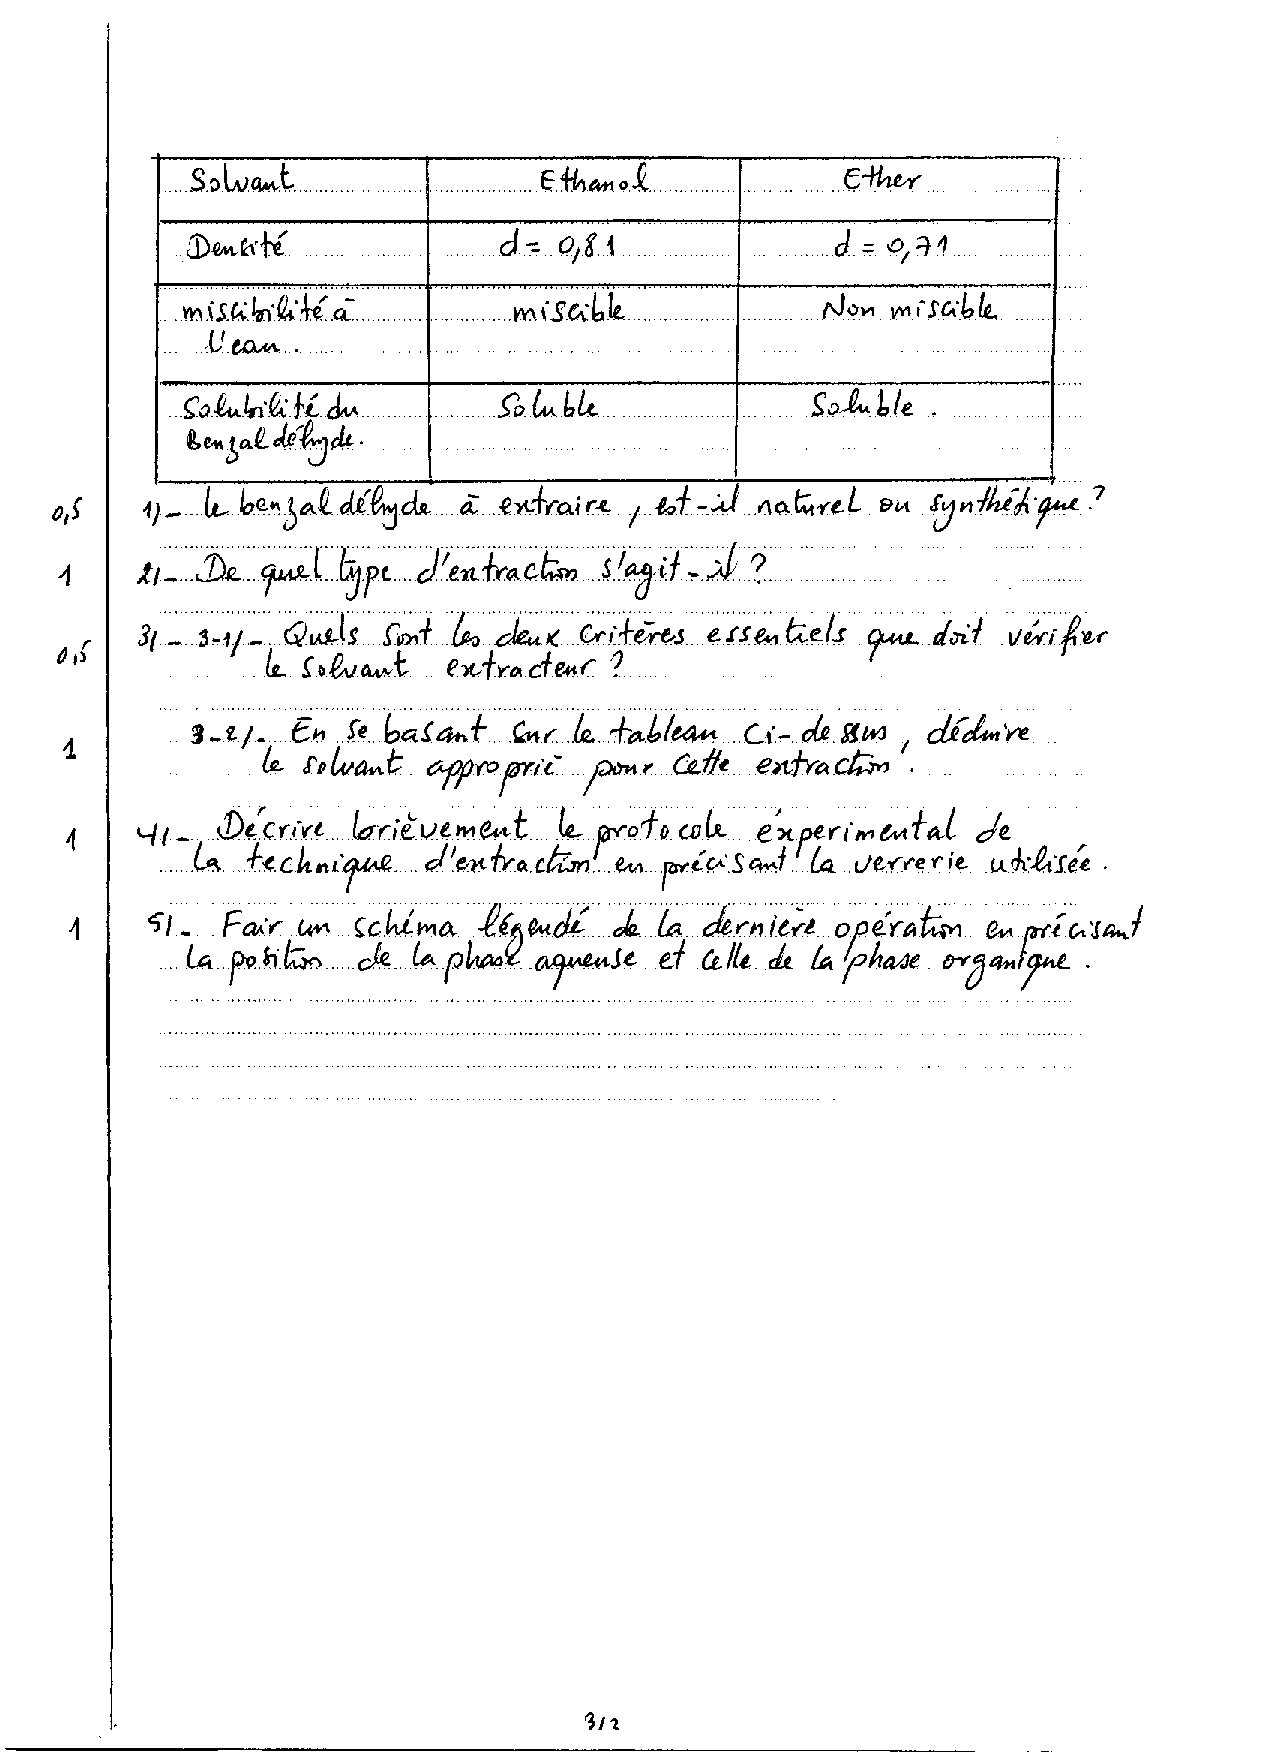 Solvant Ethanol Ether
Densité d = 0,81 d = 0,71
miscibilité à miscible Non miscible
l'eau.
Solubilité du Soluble Soluble.
Benzaldéhyde.
0,5 1)- le benzaldéhyde à extraire, est-il naturel ou synthétique?
1 2/- De quel type d'extraction s'agit-il?
3/- 3-1/- Quels sont les deux critères essentiels que doit vérifier
0,5 le solvant extracteur?
3-2/- En se basant sur le tableau ci-dessus, déduire
1 le solvant approprié pour cette extraction.
1 4/- Décrire brièvement le protocole expérimental de
la technique d'extraction en précisant la verrerie utilisée.
1 5/- Fair un schéma légendé de la dernière opération en précisant
la position de la phase aqueuse et celle de la phase organique.
3/2